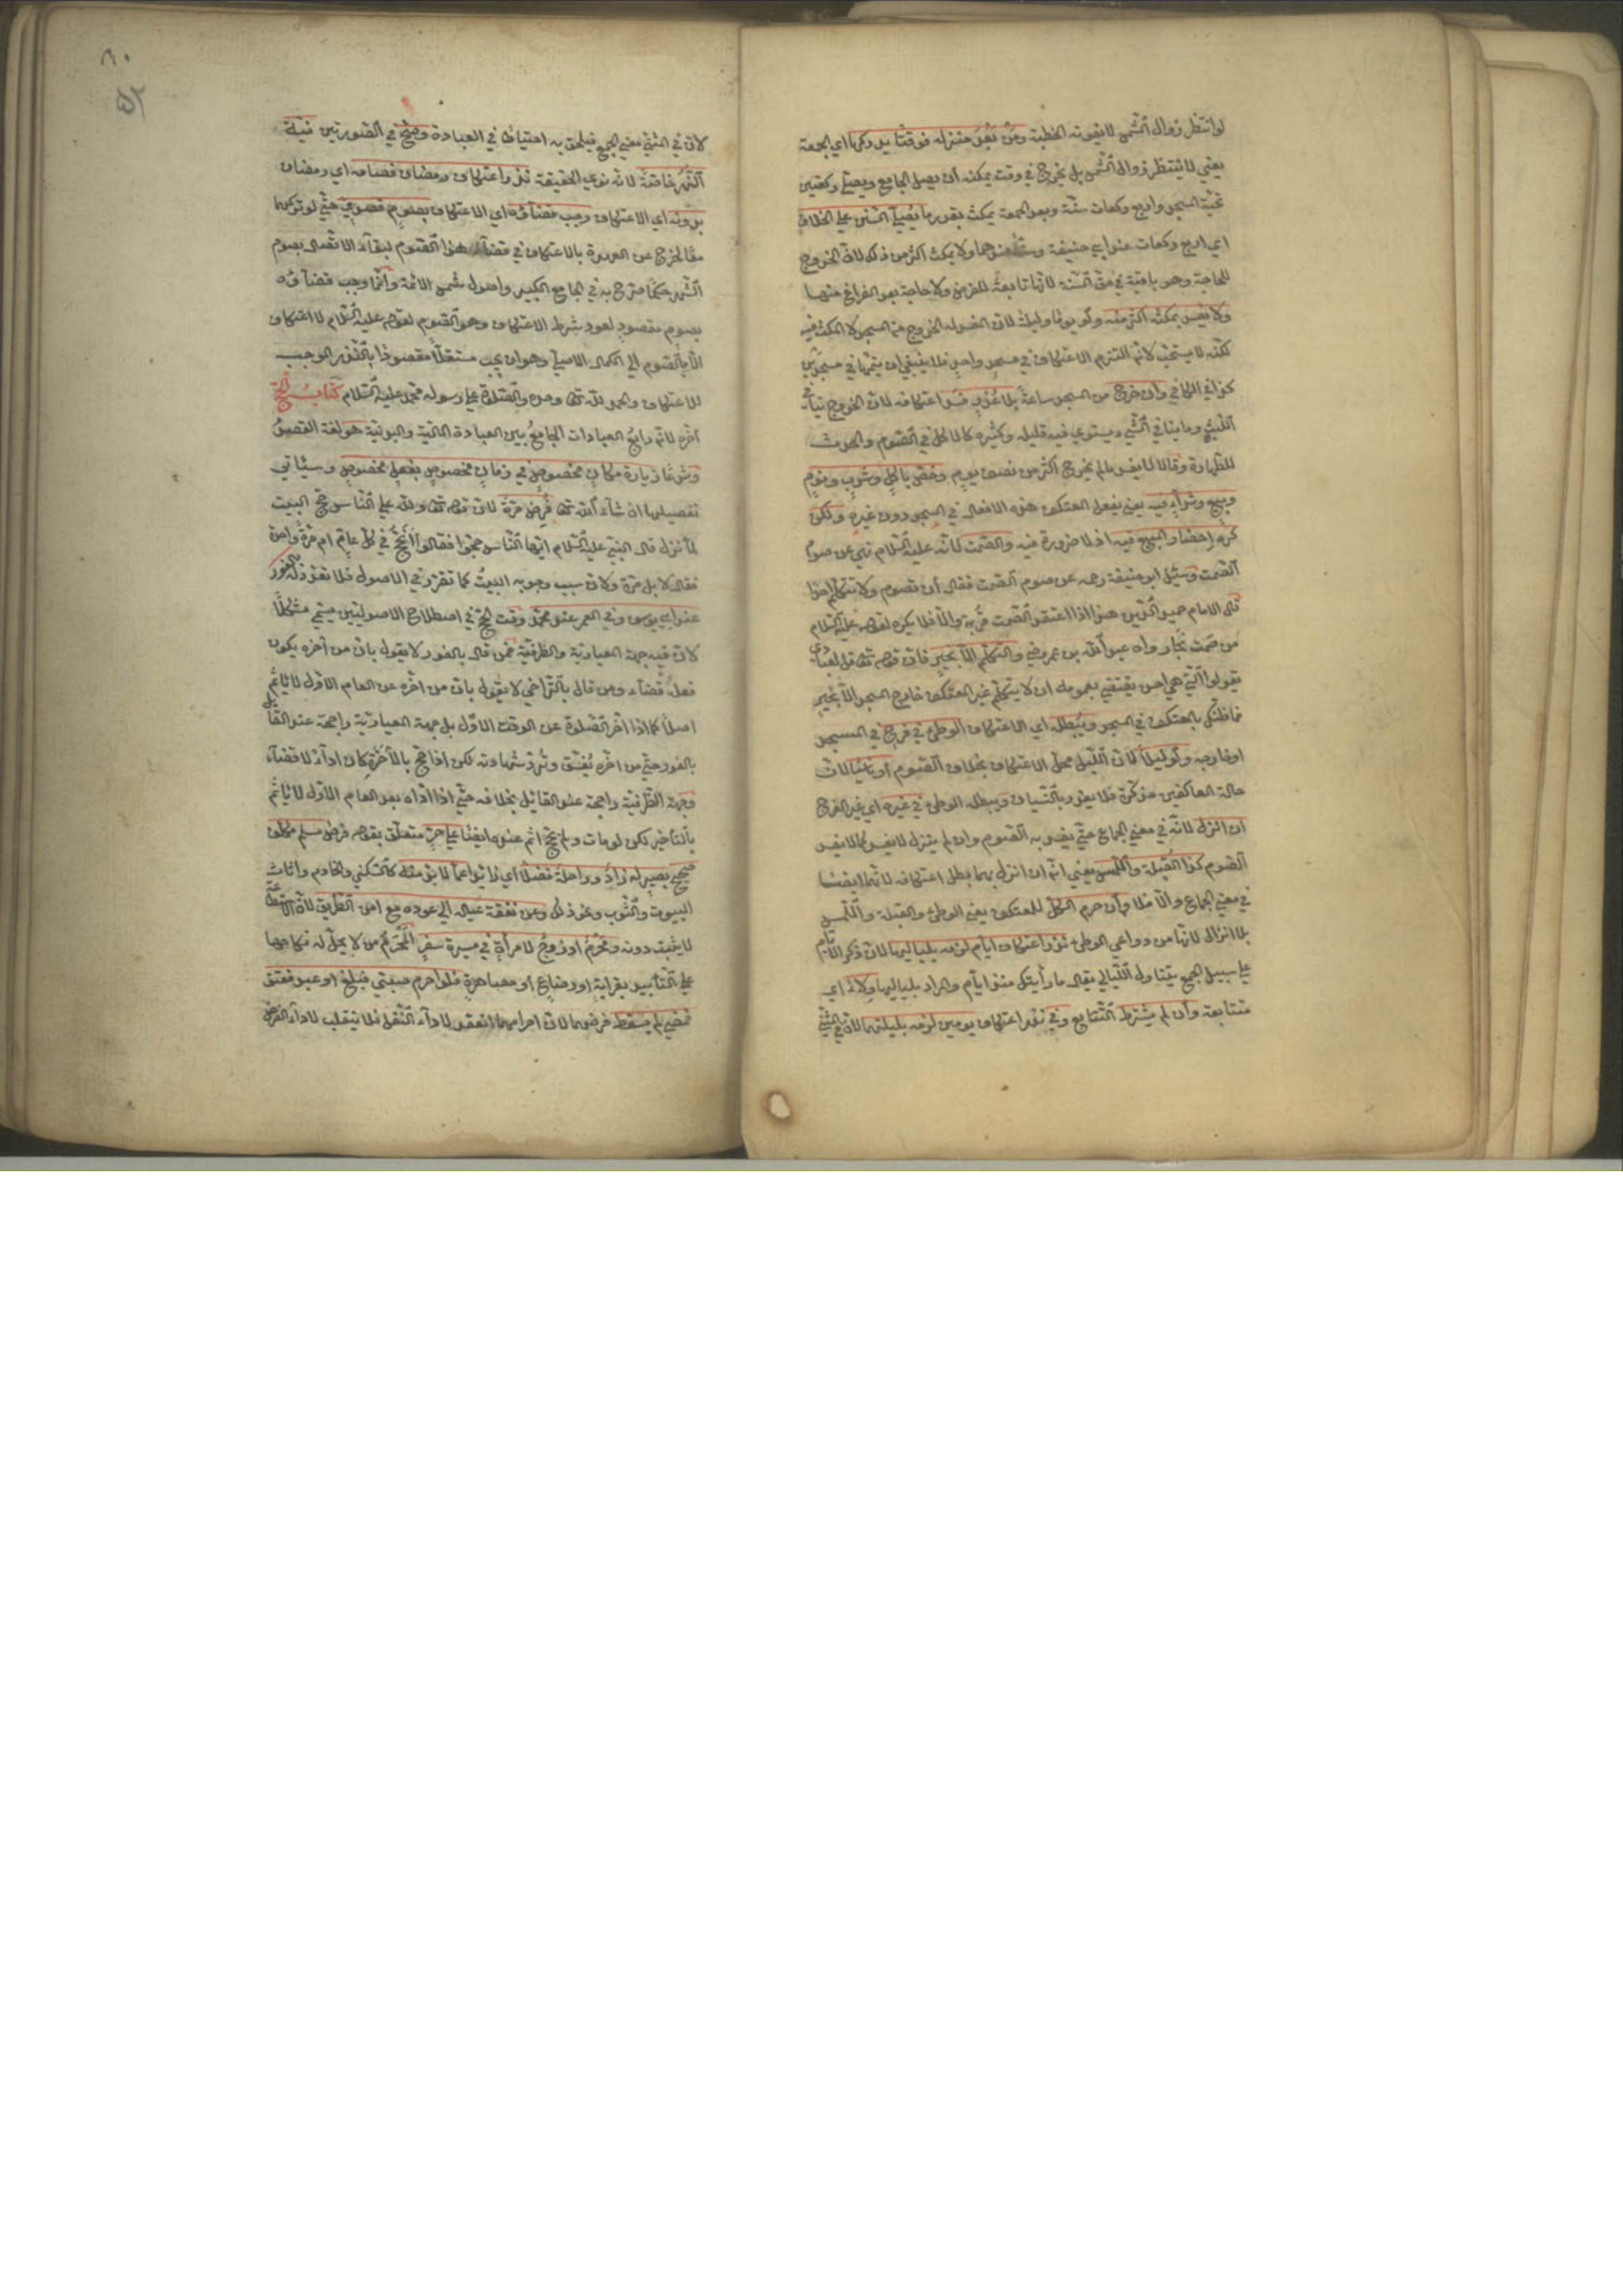 لو انتظر زوال الشمس لا يفوته الخطبة ومن بعد منزله فوقتا يدركها اي الجمعة
يعني لا ينتظر زوال الشمس بل يخرج في وقت يمكنه ان يصل الجامع ويصلي ركعتين
تحية المسجد واربع ركعات سنة وبعد الجمعة يمكث بقدر ما يصلي السنن علي الخلاف
اي اربع ركعات عند ابي حنيفة وست عندهما ولا يمكث اكثر من ذلك لان الخروج
للحاجة وهي باقية في حق السنة لانها تابعة للفرض ولا حاجة بعد الفراغ منها
ولا يفسد بمكثه اكثر منه ولو يوما وليلة لان المفسد له الخروج من المسجد لا المكث فيه
لكنه لا يستحب لانه التزم الاعتكاف في مسجد واحد فلا ينبغي ان يتمها في مسجدين
كذا في الكافي وان خرج من المسجد ساعة بلا عذر فسد اعتكافه لان الخروج ينافي
اللبث وما ينافي الشيء يستوي فيه قليله وكثيره كالاكل في الصوم والحدث
للطهارة وقالا لا يفسد ما لم يخرج اكثر من نصف يوم وخص باكل وشرب ونوم
وبيع وشراء فيه يعني يفعل المعتكف هذه الافعال في المسجد دون غيره ولكن
كره احضار المبيع فيه اذ لا ضرورة فيه والصمت لانه عليه السلام نهي عن صوم
الصمت وسئل ابو حنيفة رحمه عن صوم الصمت فقال ان تصوم ولا تتكلم احدا
قال الامام حميد الدين هذا اذا اعتقد الصمت قربة والا فلا يكره لقوله عليه السلام
من صمت نجا رواه عبد الله بن عمر رضي والتكلم الا بخير فان قوله تعالى قل لعبادي
يقولوا التي هي احسن يقتضي بعمومه ان لا يتكلم غير المعتكف خارج المسجد الا بخير
فما ظنك بالمعتكف في المسجد ويبطله اي الاعتكاف الوطئ في فرج في المسجد
او خارجه ولو ليلا لان الليل محل الاعتكاف بخلاف الصوم او ناسيا لان
حالة العاكفين مذكرة فلا يعذر بالنسيان ويبطله الوطئ في غيره اي غير الفرج
ان انزل لانه في معني الجماع حتي يفسد به الصوم وان لم ينزل لا يفسد كما لا يفسد
الصوم كذا القبلة واللمس يعني انه ان انزل بهما بطل اعتكافه لانهما ايضا
في معني الجماع والا فلا وان حرم الكل للمعتكف يعني الوطئ والقبلة واللمس
بلا انزال لانها من دواعي الوطئ نذر اعتكاف ايام لزمه بلياليها لان ذكر الايام
علي سبيل الجمع يتناول الليالي يقال ما رأيتك منذ ايام والمراد بلياليها ولاء اي
متتابعة وان لم يشترط التتابع وفي نذر اعتكاف يومين لزمه بليلتهما لان في المثني
٨٠
٥٢
لان في المثني معني الجمع فيلحق به احتياطا في العبادة وصح في الصورتين نية
النهر خاصة لانه نوي الحقيقة نذر اعتكاف رمضان فصامه اي رمضان
بدونه اي الاعتكاف وجب قضاؤه اي الاعتكاف بصوم قصدي حتي لو تركهما
معا يخرج عن العهدة بالاعتكاف في قضاء هذا الصوم لبقاء الاتصال بصوم
الشهر حكما صرح به في الجامع الكبير واصول شمس الائمة وانما وجب قضاؤه
بصوم مقصود لعود شرط الاعتكاف وهو الصوم لقوله عليه السلام لا اعتكاف
الا بالصوم الي الكمال الاصلي وهو ان يجب مستقلا مقصودا بالنذر الموجب
للاعتكاف والحمد لله تعالى وحده والصلوة علي رسوله محمد عليه السلام كتاب الحج
اخره لانه رابع العبادات الجامع بين العبادة المالية والبدنية هو لغة القصد
وشرعا زيارة مكان مخصوص في زمان مخصوص بفعل مخصوص وسيأتي
تفصيلها ان شاء الله تعالى فرض مرة لان قوله تعالى ولله علي الناس حج البيت
لما نزل قال النبي عليه السلام ايها الناس حجوا فقالوا أنحج في كل عام ام مرة واحدة
فقال لا بل مرة ولان سبب وجوبه البيت كما تقرر في الاصول فلا تعدد له بالفور
عند ابي يوسف وفي العمر عند محمد وقت الحج في اصطلاح الاصوليين يسمي مشكلا
لان فيه جهة المعيارية والظرفية فمن قال بالفور لا يقول بان من اخره يكون
فعله قضاء ومن قال بالتراخي لا يقول بان من اخره عن العام الاول لا يأثم
اصلا كما اذا اخر الصلوة عن الوقت الاول بل جهة المعيارية راجحة عند القائل
بالفور حتي من اخره يفسق وترد شهادته لكن اذا حج بالآخرة كان اداء لا قضاء
وجهة الظرفية راجحة عند القائل بخلافه حتي اذا اداه بعد العام الاول لا يأثم
بالتأخير لكن لو مات ولم يحج اثم عنده ايضا علي حر متعلق بقوله فرض مسلم مكلف
صحيح بصير له زاد وراحلة فضلا اي زائدا عما لا بد منه كالسكني والخادم واثاث
البيوت والثوب ونحو ذلك وعن نفقة عياله الي عوده مع امن الطريق لان الاستطاعة
لا يثبت دونه ومحرم او زوج لامرأة في مسيرة سفر المحرم من لا يحل له نكاحها
علي التأبيد بقرابة او رضاع او مصاهرة فلو احرم صبي فبلغ او عبد فعتق
فمضي لم يسقط فرضهما لان احرامهما انعقد لاداء النفل فلا ينقلب لاداء الفرض